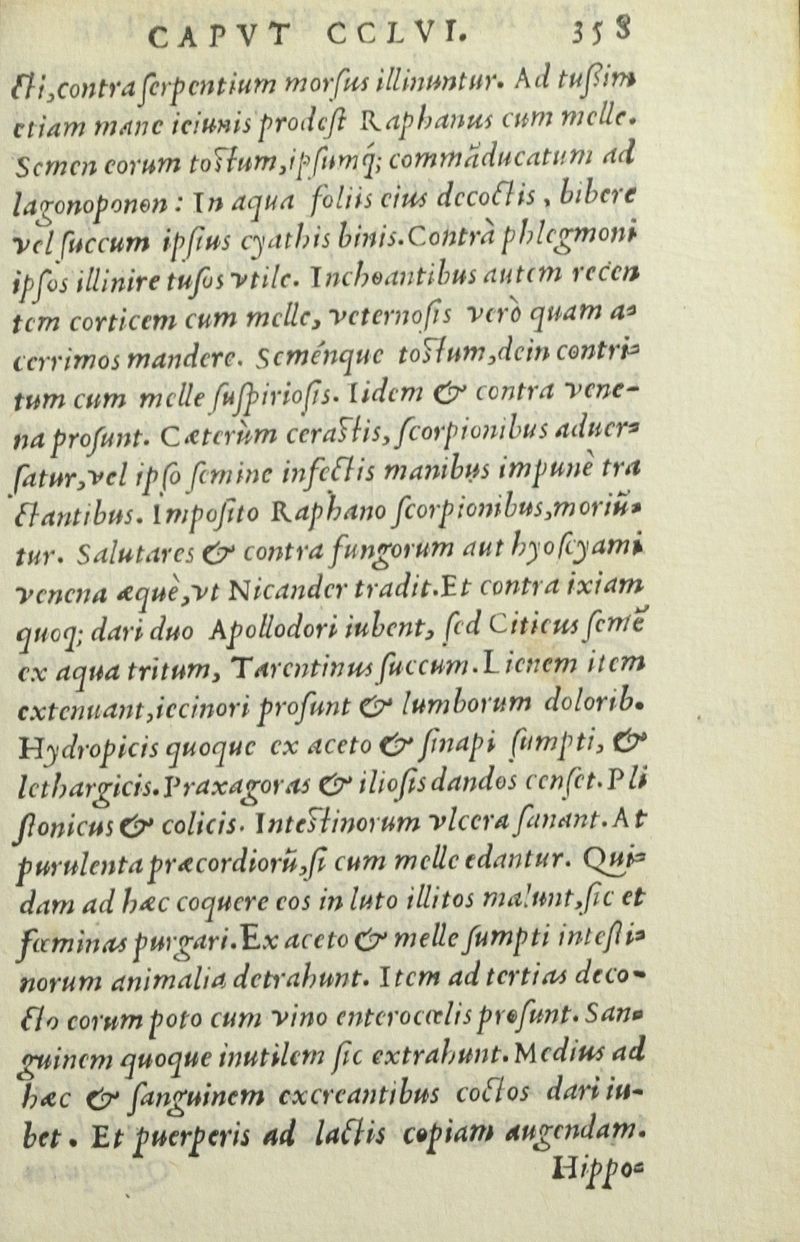 CAPVT CCLVI. 358
cti, contra serpentium morsus illinuntur. Ad tussim
etiam mane ieiunis prodest Raphanus cum melle.
Semen eorum tostum, ipsumq́; commāducatum ad
lagonoponon: In aqua foliis eius decoctis, bibere
vel succum ipsius cyathis binis. Contrà phlegmoni
ipsos illinire tusos vtile. Inchoantibus autem recen
tem corticem cum melle, veternosis verò quam a-
cerrimos mandere. Seménque tostum, dein contri-
tum cum melle suspiriosis. Iidem & contra vene-
na prosunt. Cæterùm cerastis, scorpionibus aduer-
satur, vel ipso semine infectis manibus impunè tra
ctantibus. Imposito Raphano scorpionibus, moriũ-
tur. Salutares & contra fungorum aut hyoscyami
venena æquè, vt Nicander tradit. Et contra ixiam
quoq; dari duo Apollodori iubent, sed Citicus semẽ
ex aqua tritum, Tarentinus succum. Lienem item
extenuant, iecinori prosunt & lumborum dolorib.
Hydropicis quoque ex aceto & sinapi sumpti, &
lethargicis. Praxagoras & iliosis dandos censet. Pli
stonicus & colicis. Intestinorum vlcera sanant. At
purulenta præcordiorũ, si cum melle edantur. Qui-
dam ad hæc coquere eos in luto illitos malunt, sic et
fœminas purgari. Ex aceto & melle sumpti intesti-
norum animalia detrahunt. Item ad tertias deco-
cto eorum poto cum vino enterocœlis prosunt. San-
guinem quoque inutilem sic extrahunt. Medius ad
hæc & sanguinem excreantibus coctos dari iu-
bet. Et puerperis ad lactis copiam augendam.
Hippo-